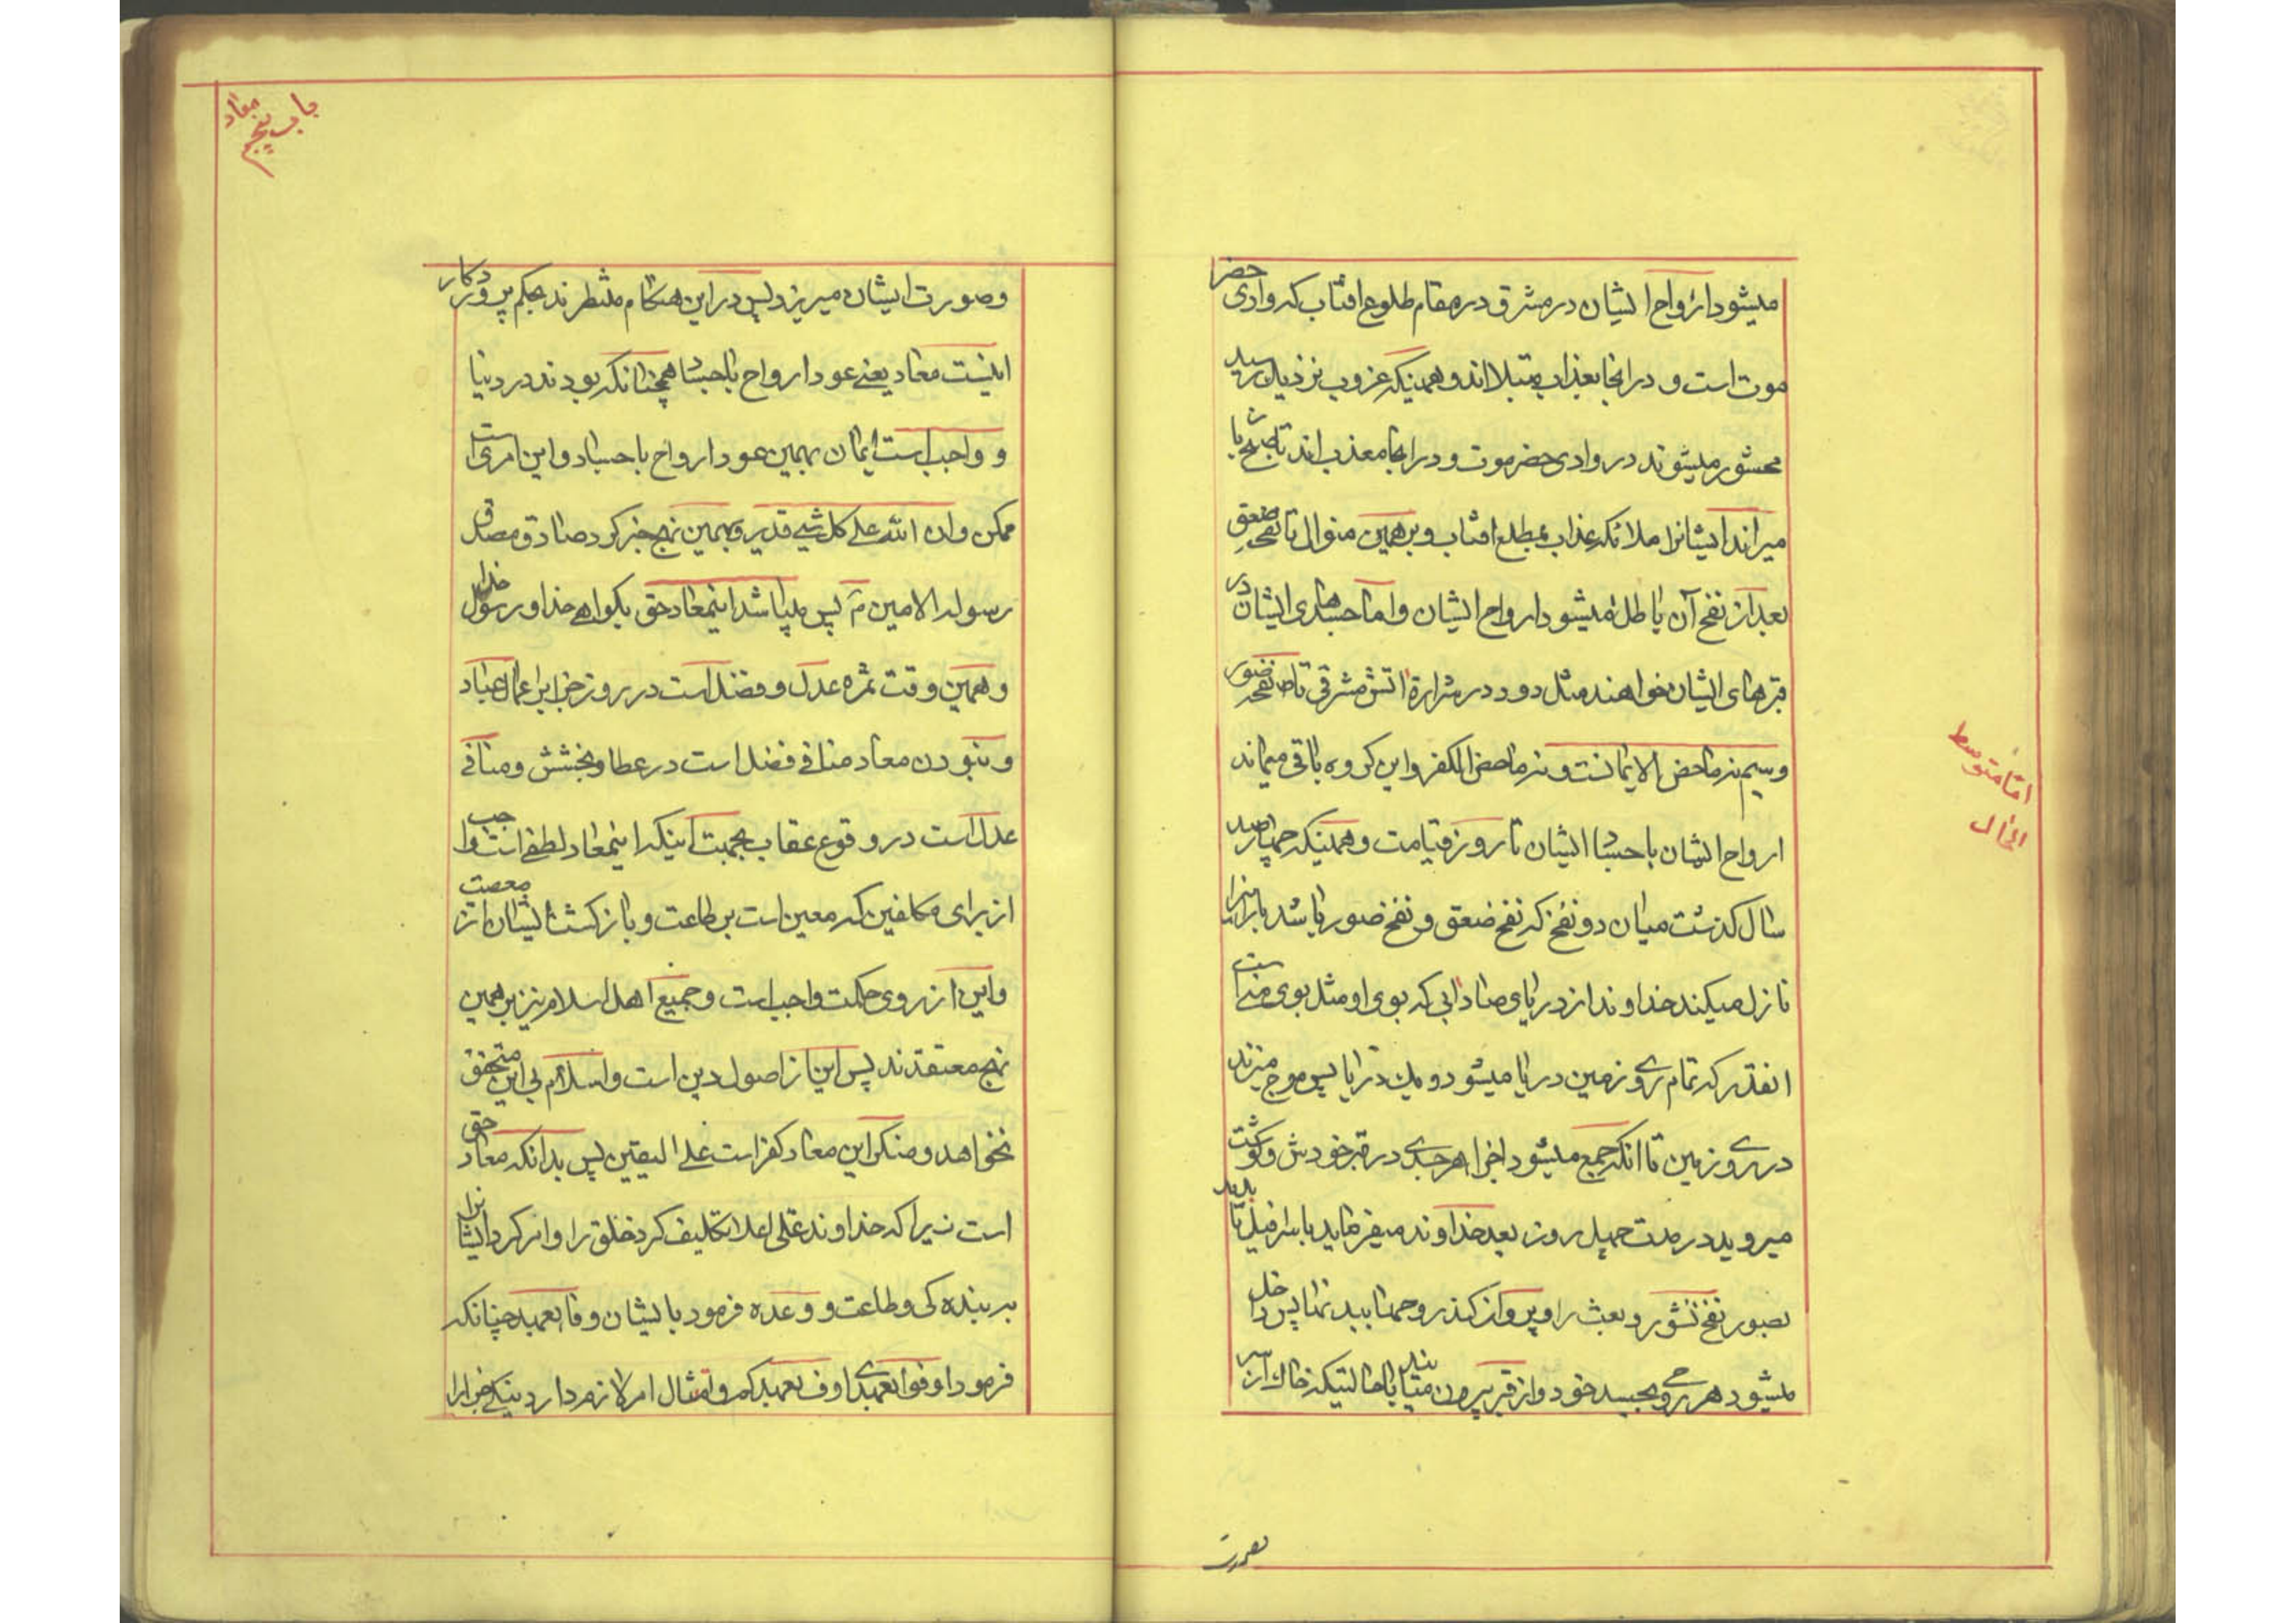 میشود ارواح ایشان در مشرق در مقام طلوع افتاب که وادی حضر
موت است و در انجا بعذاب مبتلا اند و همینکه غروب نزدیک رسید
محشور میشوند در وادی حضر موت و در انجا معذب اند تا صبح با
میراند ایشانرا ملائکه عذاب بمطلع افتاب و بر همین منوال تا نفخه صعق
بعد از نفخ آن باطل میشود ارواح ایشان و اما جسدهای ایشان در
قبرهای ایشان خواهند مثل دود در شرارۀ اتش مشرقی تا نفخه صور
و سیم نه ماحض الایمانست و نه ماحض الکفر و این کروه باقی میماند
ارواح ایشان با جساد ایشان تا روز قیامت و همینکه چهار صد
سال کذشت میان دو نفخ که نفخ صعق و نفخ صور باشد
نازل میکند خداوند از دریای صاد ابی که بوی او مثل بوی منی است
انقدر که تمام روی زمین دریا میشود و یک دریا پس موج میزند
در روی زمین تا انکه جمع میشود اجزا هر جسدی در قبر خودش و کوشت
میروید در مدت چهل روز بعد خداوند میفرماید باسرافیل تا بدمد
بصور نفخ نشور و بعث را و پرواز کند روحها پس داخل
میشود هر روحی بجسد خود و از قبر بیرون میایند با حالتیکه خاک از سر
اما متوسط
الحال
بصورت
باب پنجم معاد
و صورت ایشان میریزد پس در این هنکام منتظرند بحکم پروردکار
اینست معاد یعنے عود ارواح باجساد همچنانکه بودند در دنیا
و واجب است ایمان بهمین عود ارواح باجساد و این امری است
ممکن و ان الله علی کل شیے قدیر و بهمین نهج خبر کرد صادق مصدق
رسوله الامین ص پس میباشد اینمعاد حق بکواهے خدا و رسول خدا
و همین وقت ثمره عدل و فضل است در روز جزا برای اعمال عباد
و نبودن معاد منافے فضل است در عطا و بخشش و منافے
عدل است در وقوع عقاب بجهت اینکه اینمعاد لطفے است واجب
از برای مکلفین که معین است بر طاعت و بازکشت ایشان از معصیت
و این از روی حکمت واجب است و جمیع اهل اسلام نیز بر همین
نهج معتقدند پس این از اصول دین است و اسلام بی این متحقق
نخواهد و منکر این معاد کفر است علے الیقین پس بدانکه معاد حق
است زیرا که خداوند علی اعلا تکلیف کرد خلق را و امر کرد ایشانرا
به بنده کی و طاعت و وعده فرمود بایشان وفا بعهد چنانکه
فرمود اوفوا بعهدی اوف بعهدکم و امتثال امر لازم دارد